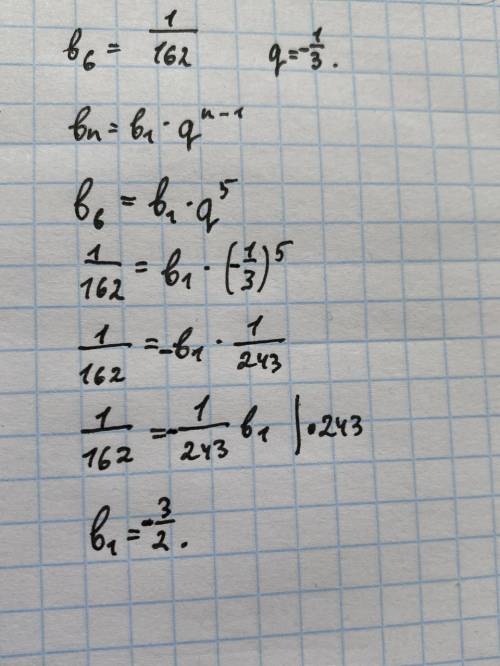 b₆ = 1/162 q = -1/3.
bn = b₁ · qⁿ⁻¹
b₆ = b₁ · q⁵
1/162 = b₁ · (-1/3)⁵
1/162 = -b₁ · 1/243
1/162 = -1/243 b₁ | · 243
b₁ = -3/2.